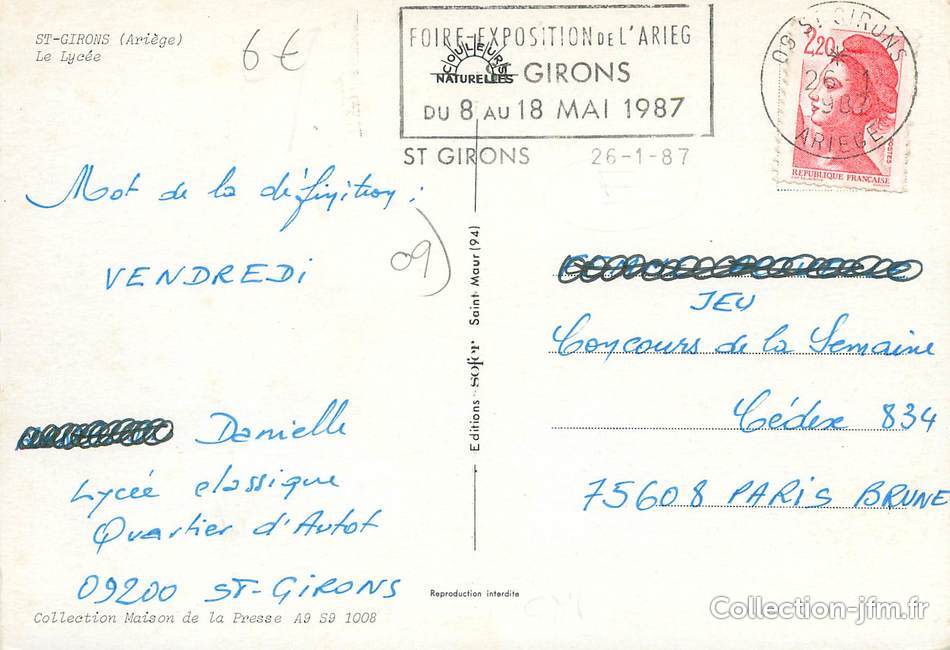 ST-GIRONS (Ariège)
Le Lycée
6€
FOIRE-EXPOSITION DE L'ARIEG
COULEURS
NATURELLES
GIRONS
DU 8 AU 18 MAI 1987
ST GIRONS 26-1-87
09 ST GIRONS
26 1
ARIEGE
2,20
POSTES
REPUBLIQUE FRANCAISE
Mot de la définition :
VENDREDI
09)
Editions sofer Saint-Maur (94)
JEU
Concours de la Semaine
Cédex 834
75608 PARIS BRUNE
Danielle
Lycée classique
Quartier d'Autot
09200 ST-GIRONS
Reproduction interdite
Collection Maison de la Presse A9 S9 1008
Collection-jfm.fr